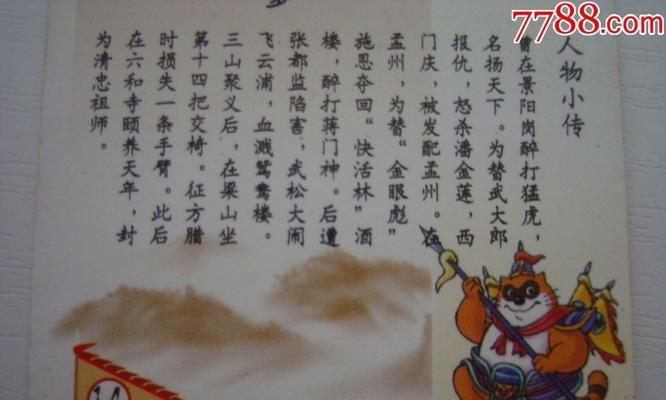 7788.com
人物小传
曾在景阳岗醉打猛虎，
名扬天下。为替武大郎
报仇，怒杀潘金莲，西
门庆，被发配孟州。在
孟州，为替“金眼彪”
施恩夺回“快活林”酒
楼，醉打蒋门神。后遭
张都监陷害，武松大闹
飞云浦，血溅鸳鸯楼。
三山聚义后，在梁山坐
第十四把交椅。征方腊
时损失一条手臂。此后
在六和寺颐养天年，封
为清忠祖师。
14